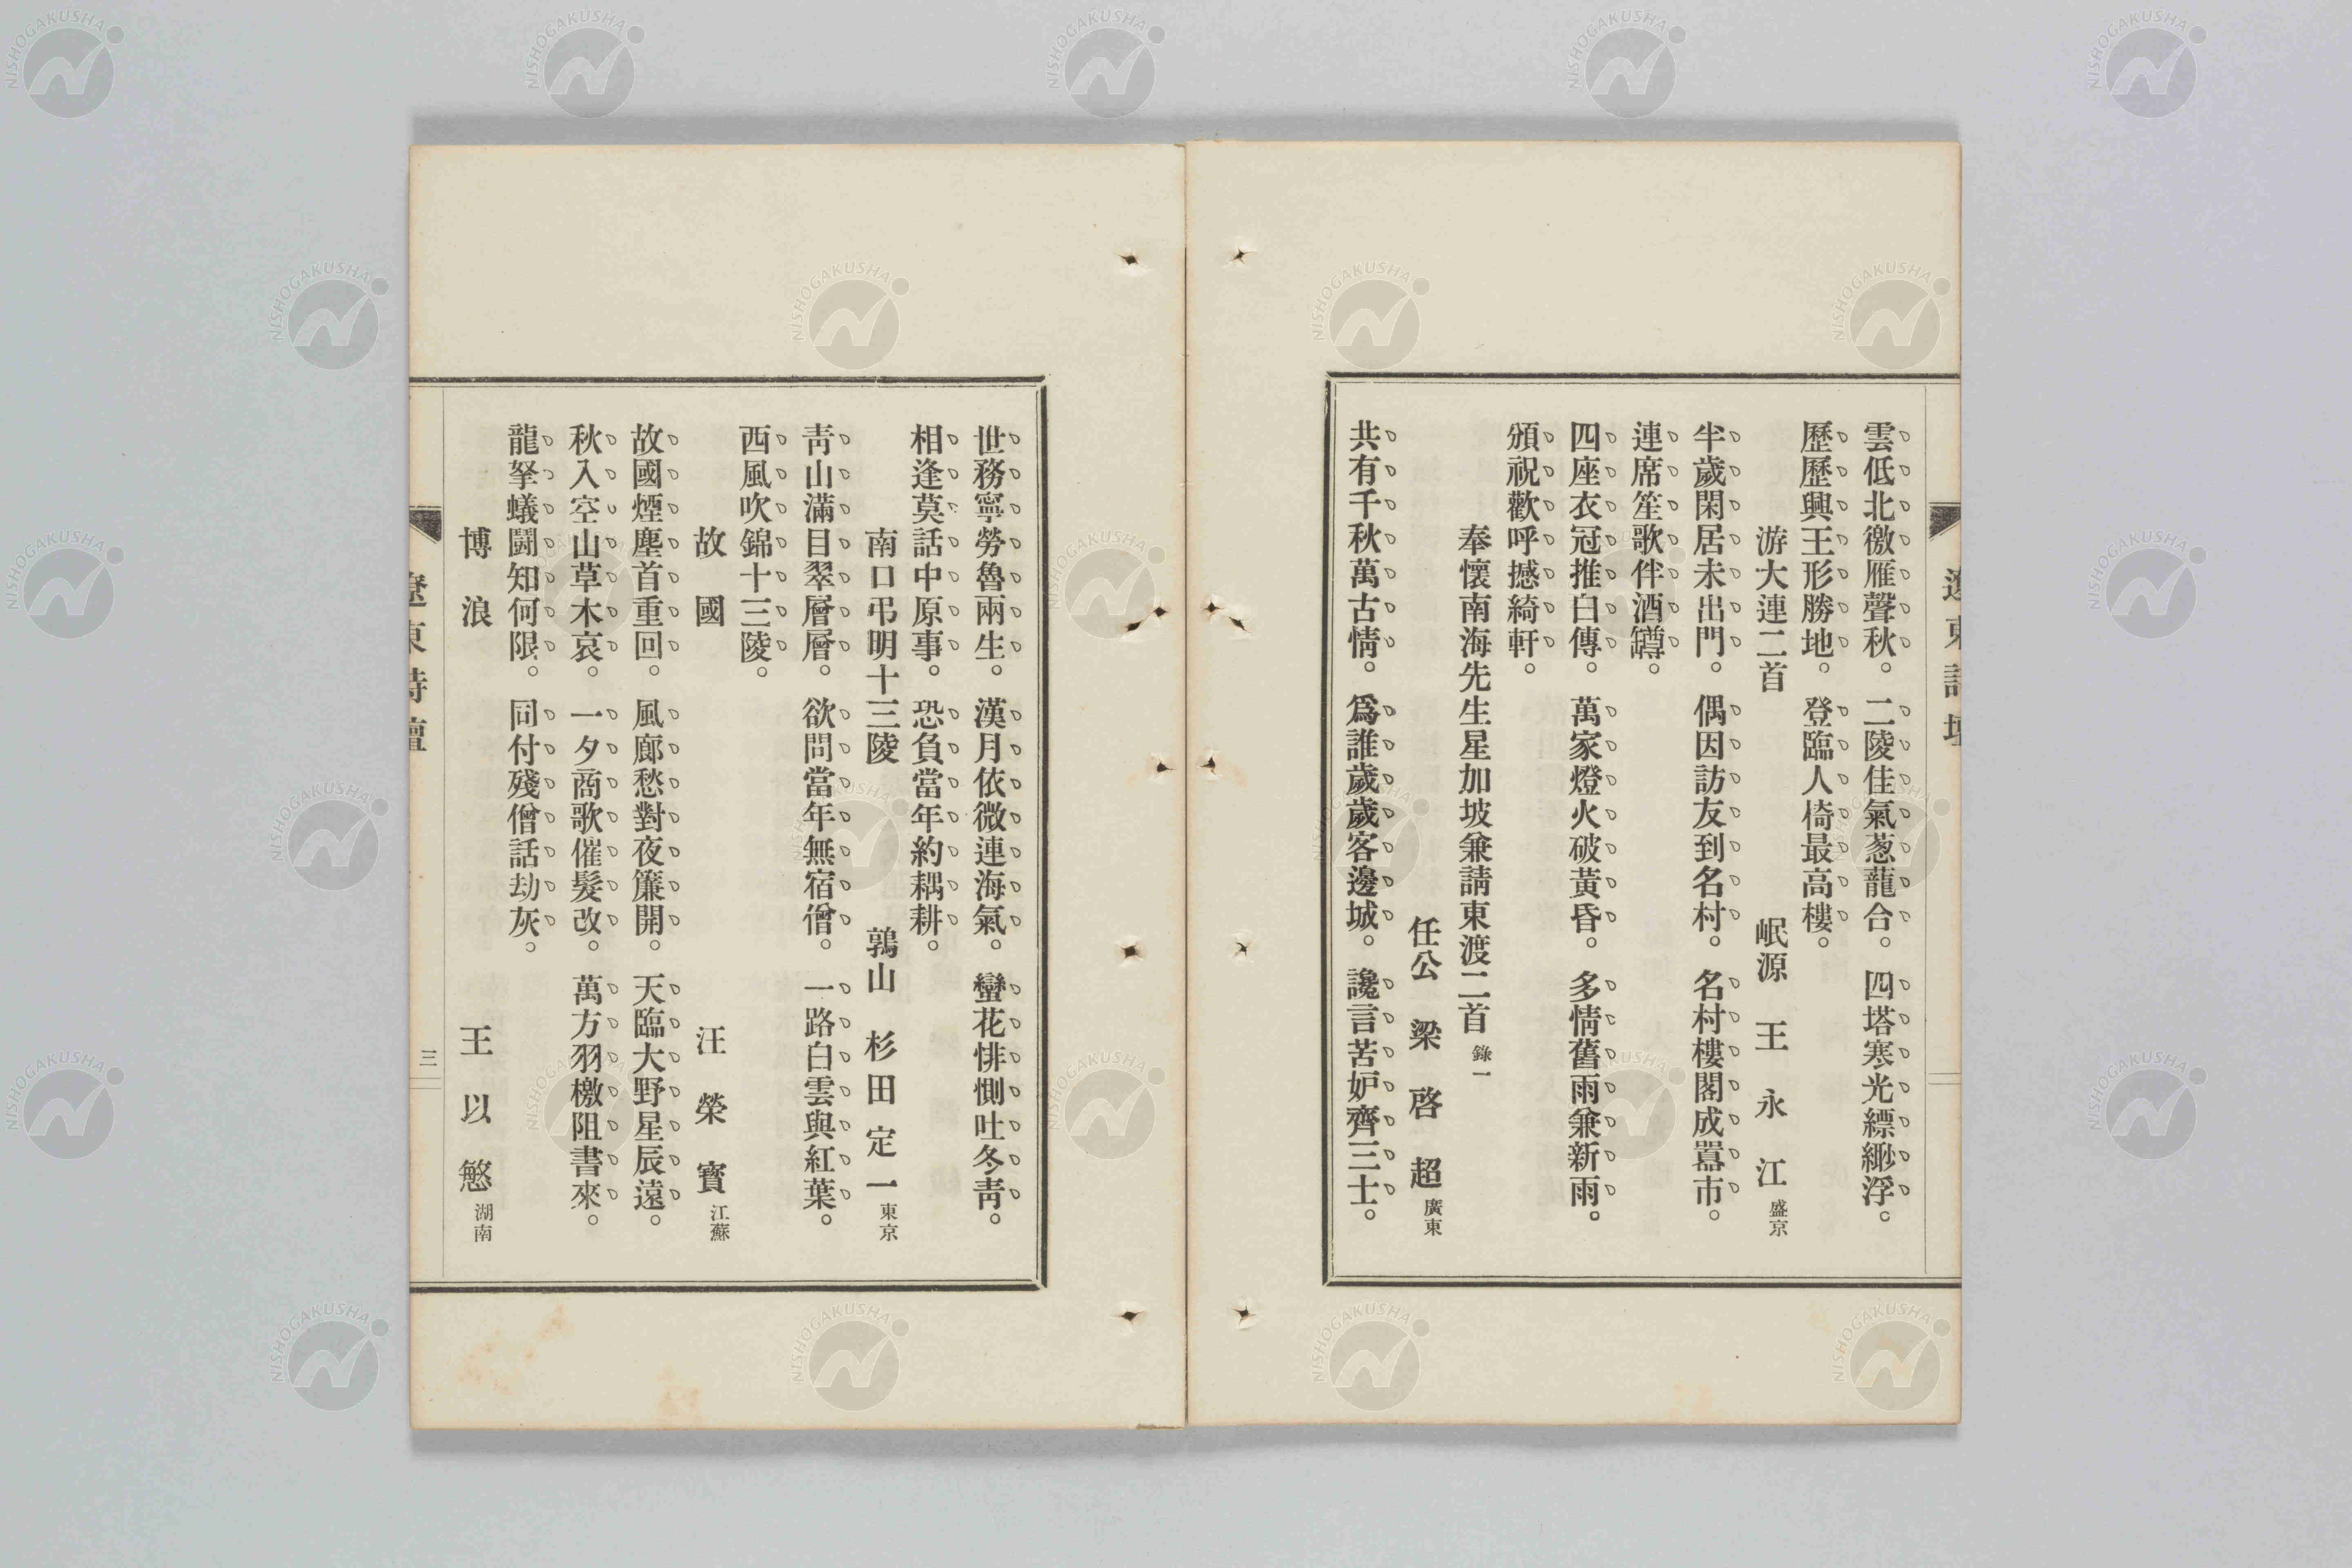 雲低北徼雁聲秋。二陵佳氣葱蘢合。四塔寒光縹緲浮。
歷歷興王形勝地。登臨人椅最高樓。
游大連二首 岷源 王永江 盛京
半歲閑居未出門。偶因訪友到名村。名村樓閣成囂市。
連席笙歌伴酒罇。
四座衣冠推白傳。萬家燈火破黃昏。多情舊雨兼新雨。
頒祝歡呼撼綺軒。
奉懷南海先生星加坡兼請東渡二首 錄一
任公 梁啓超 廣東
共有千秋萬古情。爲誰歲歲客邊城。讒言苦妒齊三士。
世務寧勞魯兩生。漢月依微連海氣。蠻花悱惻吐冬靑。
相逢莫話中原事。恐負當年約耦耕。
南口弔明十三陵 鶉山 杉田定一 東京
靑山滿目翠層層。欲問當年無宿僧。一路白雲與紅葉。
西風吹錦十三陵。
故國 汪榮寶 江蘇
故國煙塵首重回。風廊愁對夜簾開。天臨大野星辰遠。
秋入空山草木哀。一夕商歌催髮改。萬方羽檄阻書來。
龍拏蟻鬪知何限。同付殘僧話劫灰。
博浪 王以慜 湖南
遼東詩壇
三